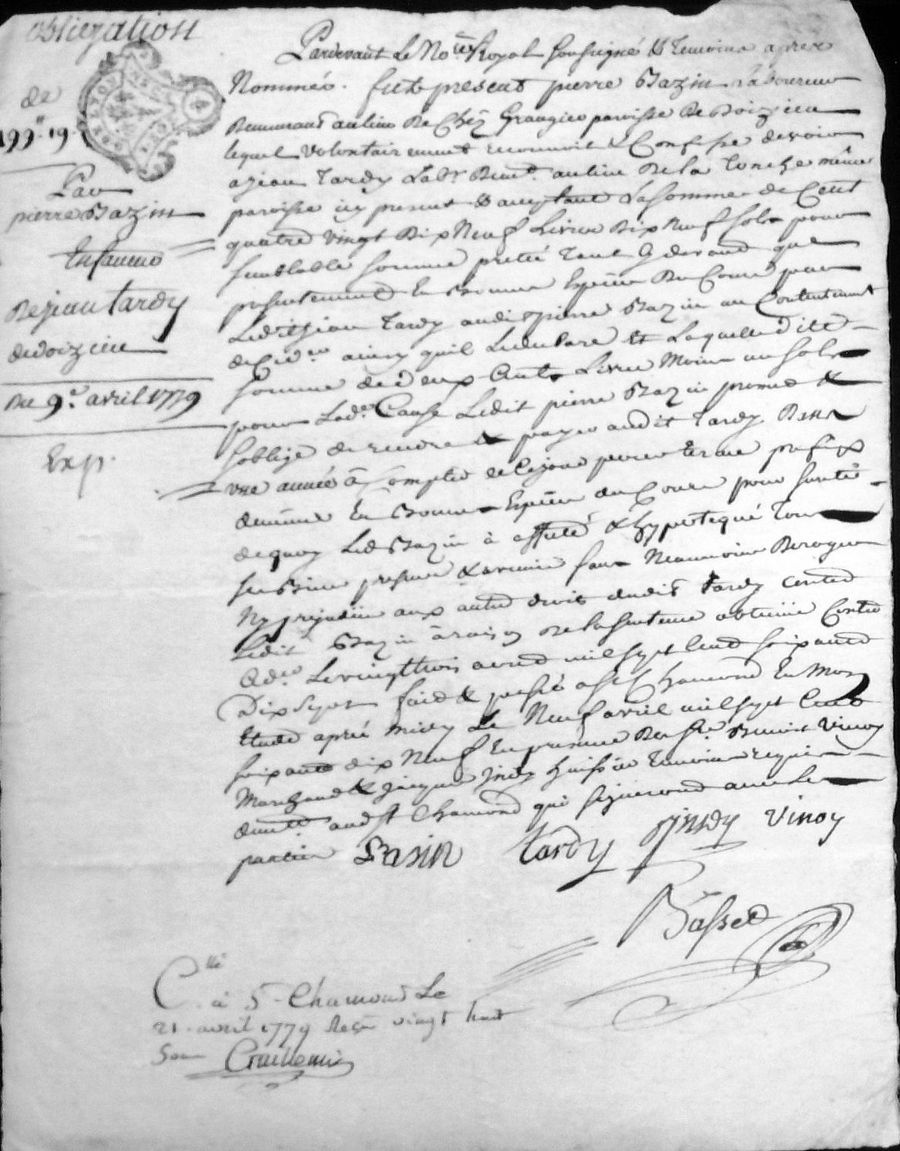 obligation
de
199# 19
Par
pierre Bazin
En faveur
De jean tardy
de doizieu
Du 9e. avril 1779
Exp.
Pardevant Le No.re Royal soussigné & Temoins apres
Nommés. fut present pierre Bazin Laboureur
Demeurant au lieu De Chez Grangier paroisse de Doizieu
lequel volontairement reconnoit & Confesse devoir
a jean Tardy Labr Demt. au lieu De la Tonche même
paroisse icy present & acceptant La somme de Cent
quatre vingt Dix Neuf Livres Dix Neuf sols pour
semblable somme preté tant Cy devant que
presentement En Bonne Espece Du Cours par
Ledit jean Tardy audit pierre Bazin au Contentement
de ainsy qu'il Le declare Et Laquelle ditte
somme de deux Cent Livres Moins un sol
pour Lad. Cause Ledit pierre Bazin promet &
s'oblige de rendre & payer audit Tardy Dans
une année à Compter de Ce jour pour terme prefix
demeure En Bonne Espece du Cours pour sureté
de quoy Led Bazin à affecté & hypotequé Tous
ses Biens present & avenir sans Neanmoins Deroger
Ny prejudicier aux autres droits dudit Tardy contre
Ledit Bazin à raison De la sentence obtenue Contre
Le vingt trois avril mil sept Cent soixante
Dix sept fait & passé a St. Chamond En Mon
Etude après midy Le Neuf avril mil sept Cent
soixante dix Neuf En presence De Sr. Benoit Vinoy
Marchand & jacque huissier Temoins requis
demts. audt St Chamond qui signeront avec Les
parties Basin tardy vinoy
Basset
C.llé à St. Chamond Le
21 avril 1779 Reçu vingt huit
Sous